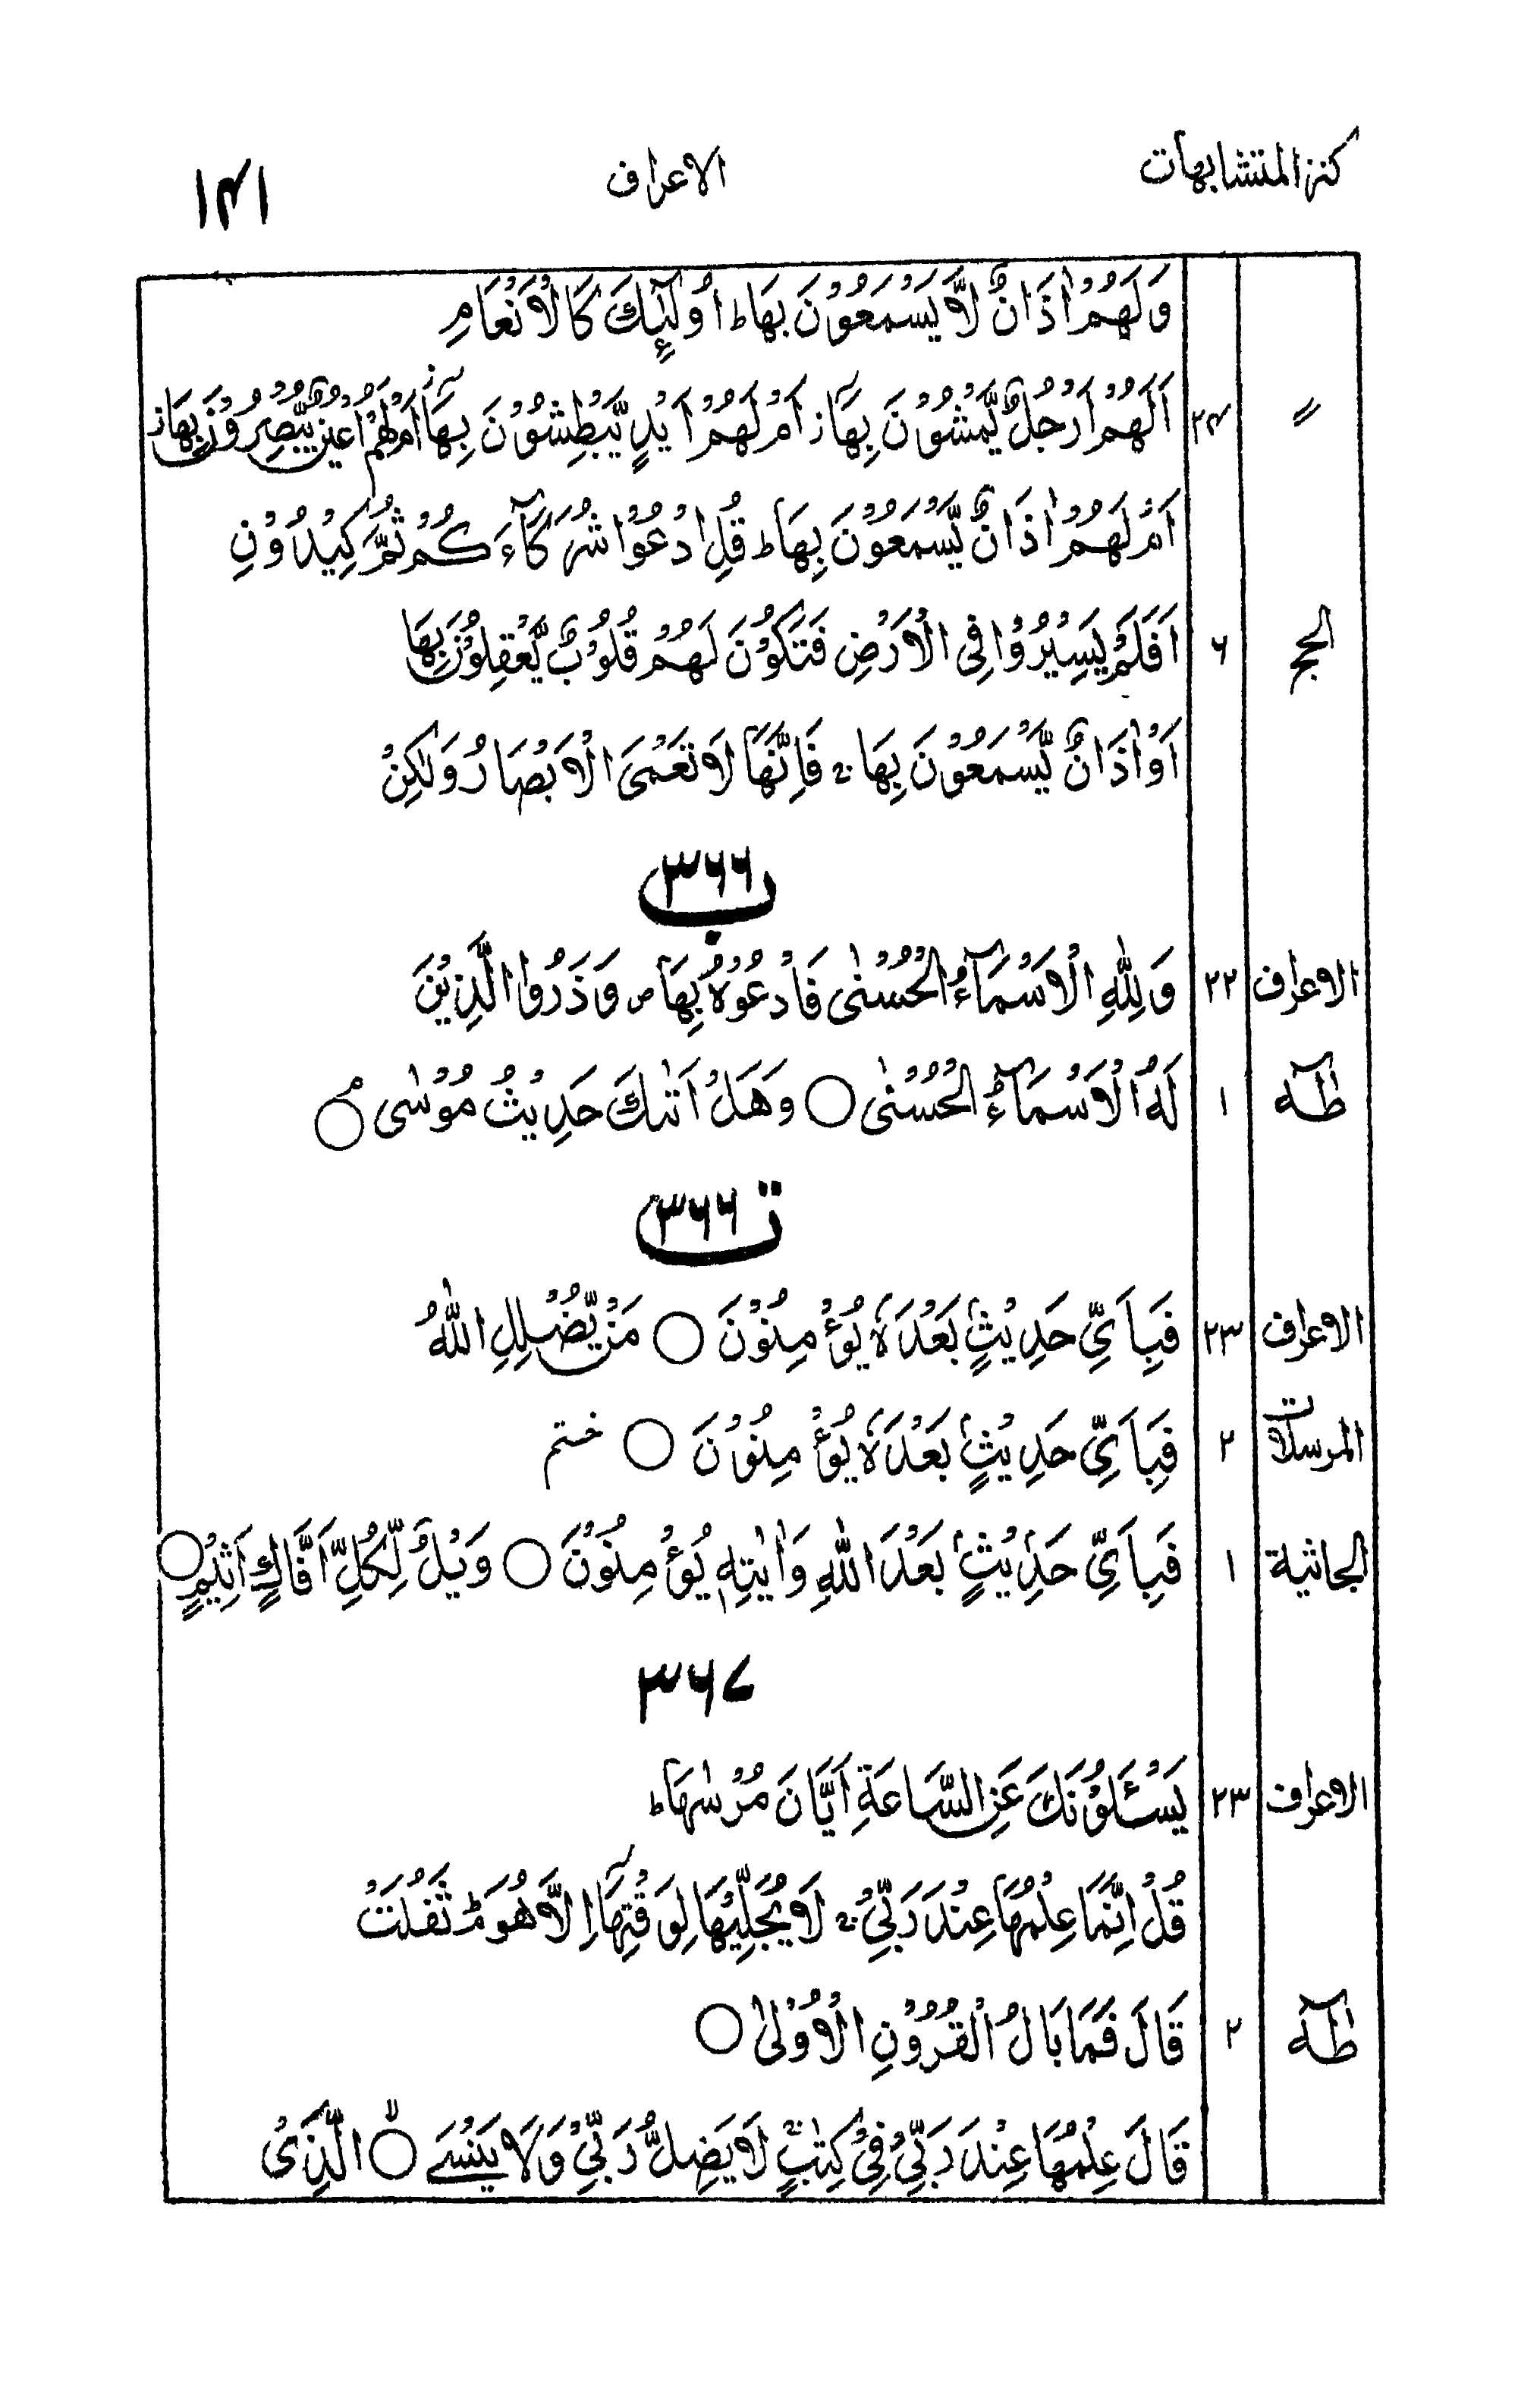 كنز المتشابهات الاعراف ۱۴۱
وَلَهُمْ اٰذَانٌ لَّا يَسْمَعُوْنَ بِهَا ؕ اُولٰٓئِكَ كَالْاَنْعَامِ
〃 ۲۴ اَلَهُمْ اَرْجُلٌ يَّمْشُوْنَ بِهَاۤ ز اَمْ لَهُمْ اَيْدٍ يَّبْطِشُوْنَ بِهَاۤ ز اَمْ لَهُمْ اَعْيُنٌ يُّبْصِرُوْنَ بِهَاۤ ز
اَمْ لَهُمْ اٰذَانٌ يَّسْمَعُوْنَ بِهَا ؕ قُلِ ادْعُوْا شُرَكَآءَكُمْ ثُمَّ كِيْدُوْنِ
الحج ۶ اَفَلَمْ يَسِيْرُوْا فِى الْاَرْضِ فَتَكُوْنَ لَهُمْ قُلُوْبٌ يَّعْقِلُوْنَ بِهَاۤ
اَوْ اٰذَانٌ يَّسْمَعُوْنَ بِهَا ۚ فَاِنَّهَا لَا تَعْمَى الْاَبْصَارُ وَلٰكِنْ
۳۶۶ ب
الاعراف ۲۲ وَلِلّٰهِ الْاَسْمَآءُ الْحُسْنٰى فَادْعُوْهُ بِهَا ص وَذَرُوا الَّذِيْنَ
طٰهٰ ۱ لَهُ الْاَسْمَآءُ الْحُسْنٰى ○ وَهَلْ اَتٰىكَ حَدِيْثُ مُوْسٰى ۘ ○
۳۶۶ ت
الاعراف ۲۳ فَبِاَيِّ حَدِيْثٍۭ بَعْدَهٗ يُؤْمِنُوْنَ ○ مَنْ يُّضْلِلِ اللّٰهُ
المرسلات ۲ فَبِاَيِّ حَدِيْثٍۭ بَعْدَهٗ يُؤْمِنُوْنَ ○ ختم
الجاثية ۱ فَبِاَيِّ حَدِيْثٍۭ بَعْدَ اللّٰهِ وَاٰيٰتِهٖ يُؤْمِنُوْنَ ○ وَيْلٌ لِّكُلِّ اَفَّاكٍ اَثِيْمٍ ○
۳۶۷
الاعراف ۲۳ يَسْـَٔلُوْنَكَ عَنِ السَّاعَةِ اَيَّانَ مُرْسٰىهَا ؕ
قُلْ اِنَّمَا عِلْمُهَا عِنْدَ رَبِّيْ ۚ لَا يُجَلِّيْهَا لِوَقْتِهَاۤ اِلَّا هُوَ ؔ ثَقُلَتْ
طٰهٰ ۲ قَالَ فَمَا بَالُ الْقُرُوْنِ الْاُوْلٰى ○
قَالَ عِلْمُهَا عِنْدَ رَبِّيْ فِيْ كِتٰبٍ ۚ لَا يَضِلُّ رَبِّيْ وَلَا يَنْسَى ○ۙ الَّذِيْ